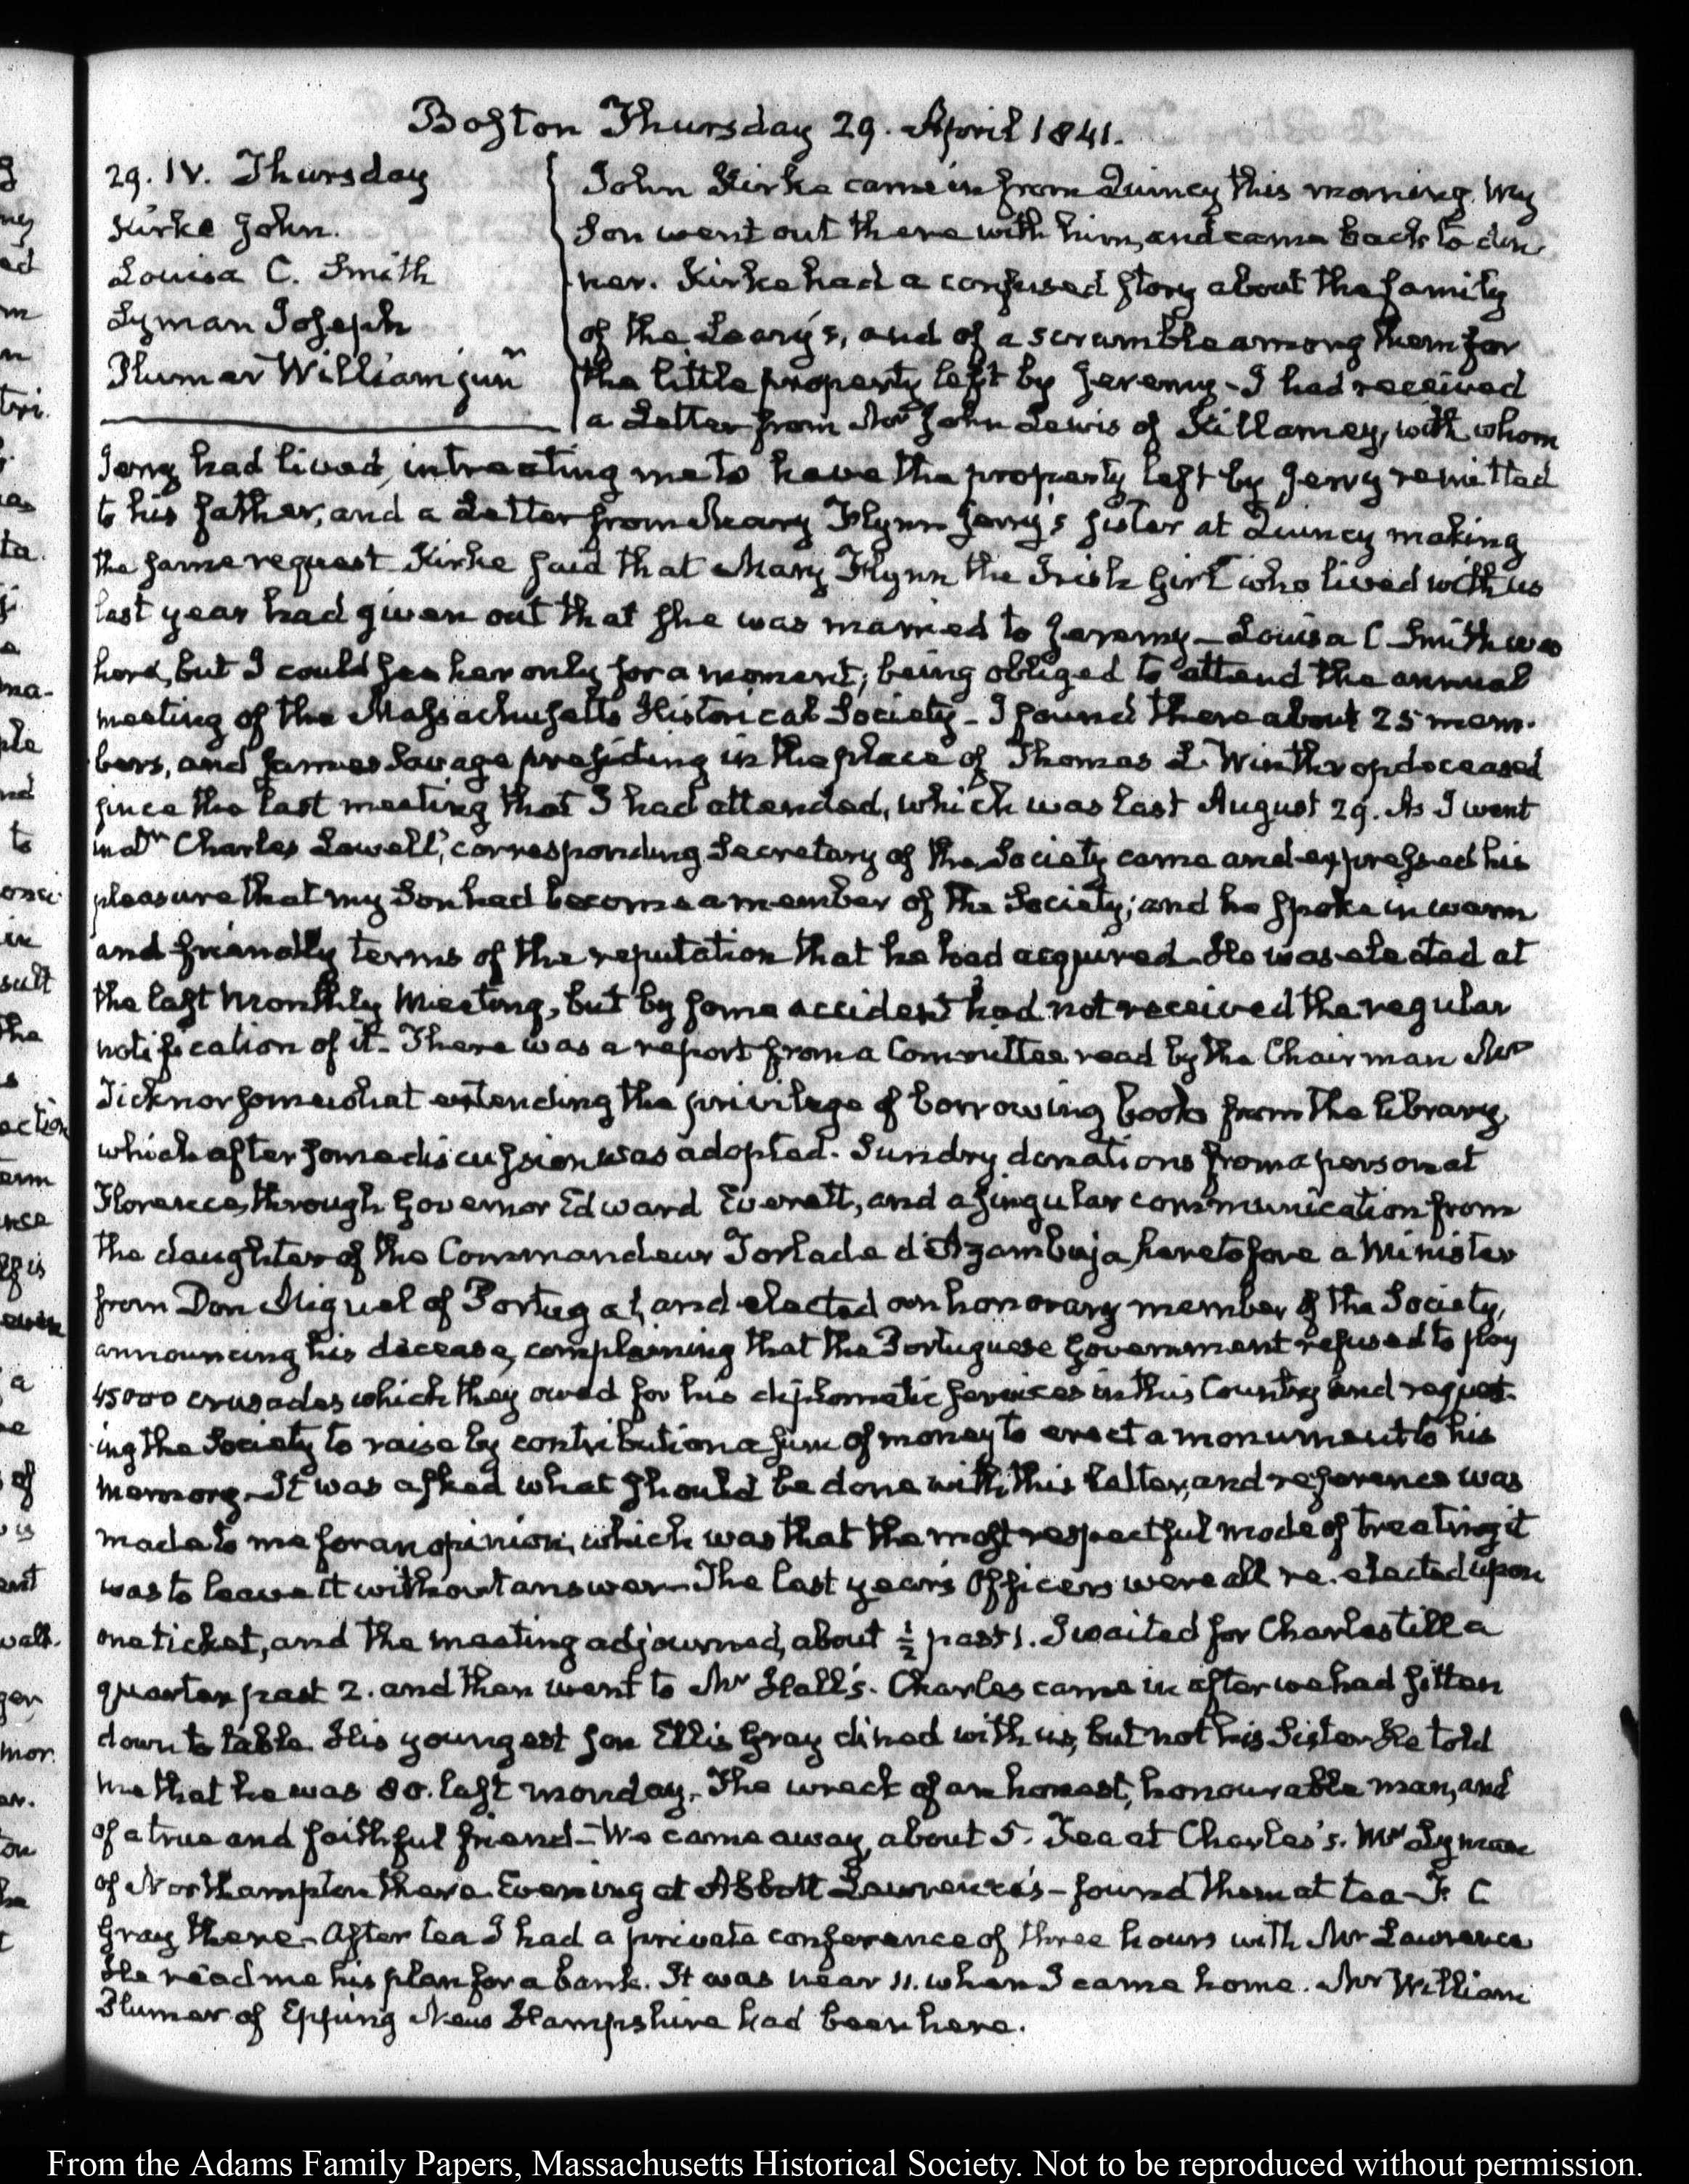 Boston Thursday 29. April 1841.
29. IV. Thursday
Kirke John.
Louisa C. Smith
Lyman Joseph
Plumer William junr
John Kirke came in from Quincy this morning. My
Son went out there with him, and came back to din
ner. Kirke had a confused story about the family
of the Leary's, and of a scramble among them for
the little property left by Jeremy - I had received
a Letter from Mr John Lewis of Killarney, with whom
Jerry had lived, intreating me to have the property left by Jerry remitted
to his father, and a Letter from Mary Flynn Jerry's sister at Quincy making
the same request Kirke said that Mary Flynn the Irish Girl who lived with us
last year had given out that she was married to Jeremy - Louisa C Smith was
here, but I could see her only for a moment; being obliged to attend the annual
meeting of the Massachusetts Historical Society - I found there about 25 mem-
bers, and James Savage presiding in the place of Thomas L. Winthrop deceased
since the last meeting that I had attended, which was last August 29. As I went
in Dr Charles Lowell, corresponding Secretary of the Society came and expressed his
pleasure that my Son had become a member of the Society; and he spoke in warm
and friendly terms of the reputation that he had acquired. He was elected at
the last Monthly Meeting, but by some accident had not received the regular
notification of it. There was a report from a Committee read by the Chairman Mr
Ticknor somewhat extending the privilege of borrowing books from the library,
which after some discussion was adopted. Sundry donations from a person at
Florence, through Governor Edward Everett, and a singular communication from
the daughter of the Commandeur Torlade d'Azambuja, heretofore a Minister
from Don Miguel of Portugal, and elected an honorary member of the Society,
announcing his decease, complaining that the Portuguese Government refused to pay
45000 crusades which they owed for his diplomatic services in this Country and request-
ing the Society to raise by contribution a sum of money to erect a monument to his
memory. It was asked what should be done with this letter, and reference was
made to me for an opinion, which was that the most respectful mode of treating it
was to leave it without answer. The last year's Officers were all re-elected upon
one ticket, and the meeting adjourned, about ½ past 1. I waited for Charles till a
quarter past 2. and then went to Mr Hall's. Charles came in after we had sitten
down to table. His youngest son Ellis Gray dined with us, but not his Sister He told
me that he was 80. last monday. The wreck of an honest, honourable man, and
of a true and faithful friend - We came away, about 5. Tea at Charles's. Mr Lyman
of Northampton there. Evening at Abbott Lawrence's - found them at tea - F. C
Gray there - After tea I had a private conference of three hours with Mr Lawrence
He read me his plan for a bank. It was near 11. when I came home. Mr William
Plumer of Epping New Hampshire had been here.
From the Adams Family Papers, Massachusetts Historical Society. Not to be reproduced without permission.